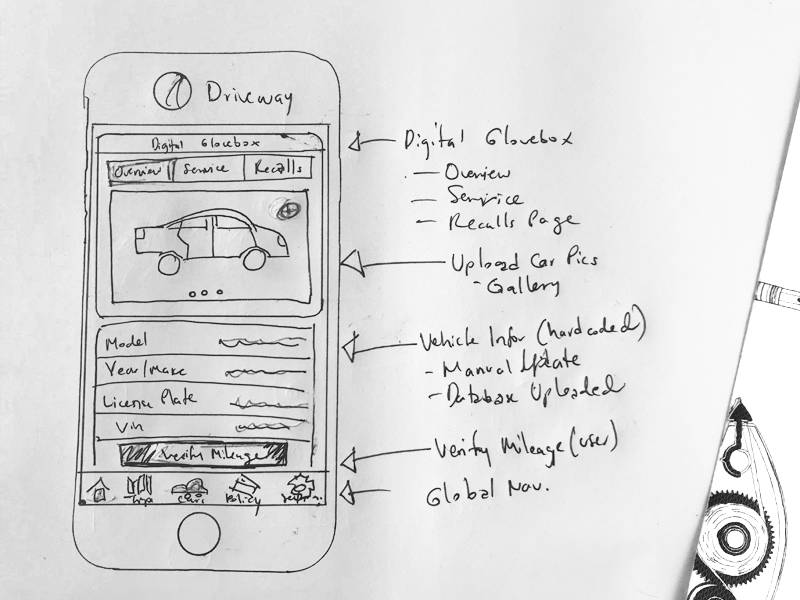 Driveway
Digital Glovebox
Overview Service Recalls
Model
Year/Make
License Plate
Vin
Verify Mileage
Trip Cars Policy
Digital Glovebox
- Overview
- Service
- Recalls Page
Upload Car Pics
- Gallery
Vehicle Infor (hardcoded)
- Manual Update
- Database Uploaded
Verify Mileage (user)
Global Nav.